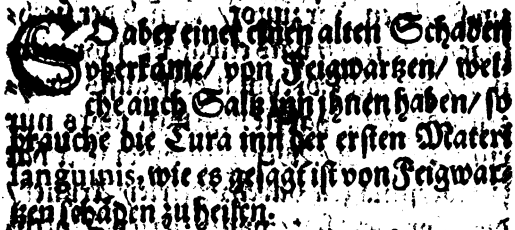 SO aber einer einen alten Schaden
vberkäme/ von Feigwartzen/ wel-
che auch Saltz inn ihnen haben/ so
brauche die Cura inn der ersten Materi
sanguinis, wie es gesagt ist von Feigwar-
tzen schäden zu heilen.